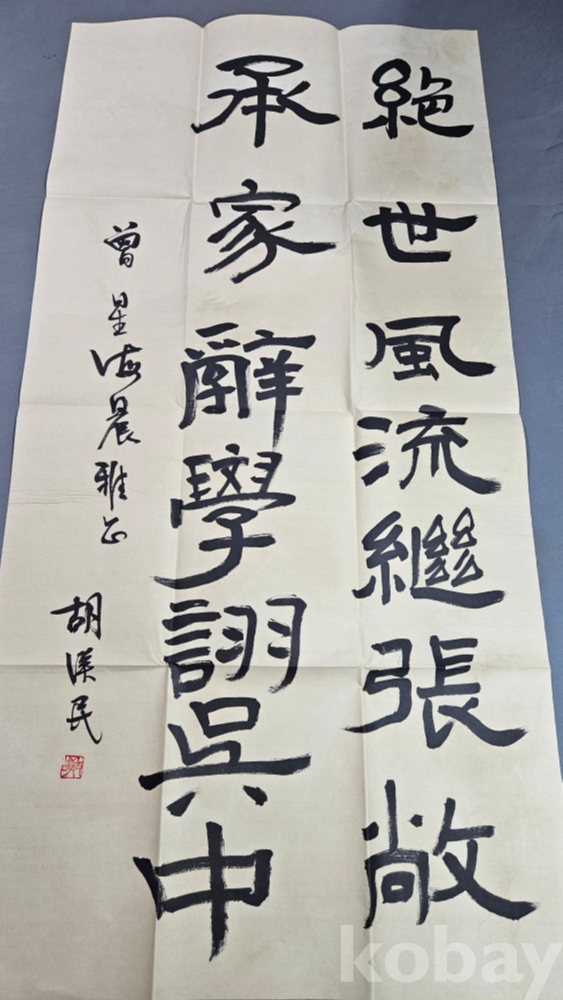 絶世風流繼張敞
承家辭學詡吳中
曾星海晨雅正
胡漢民
kobay